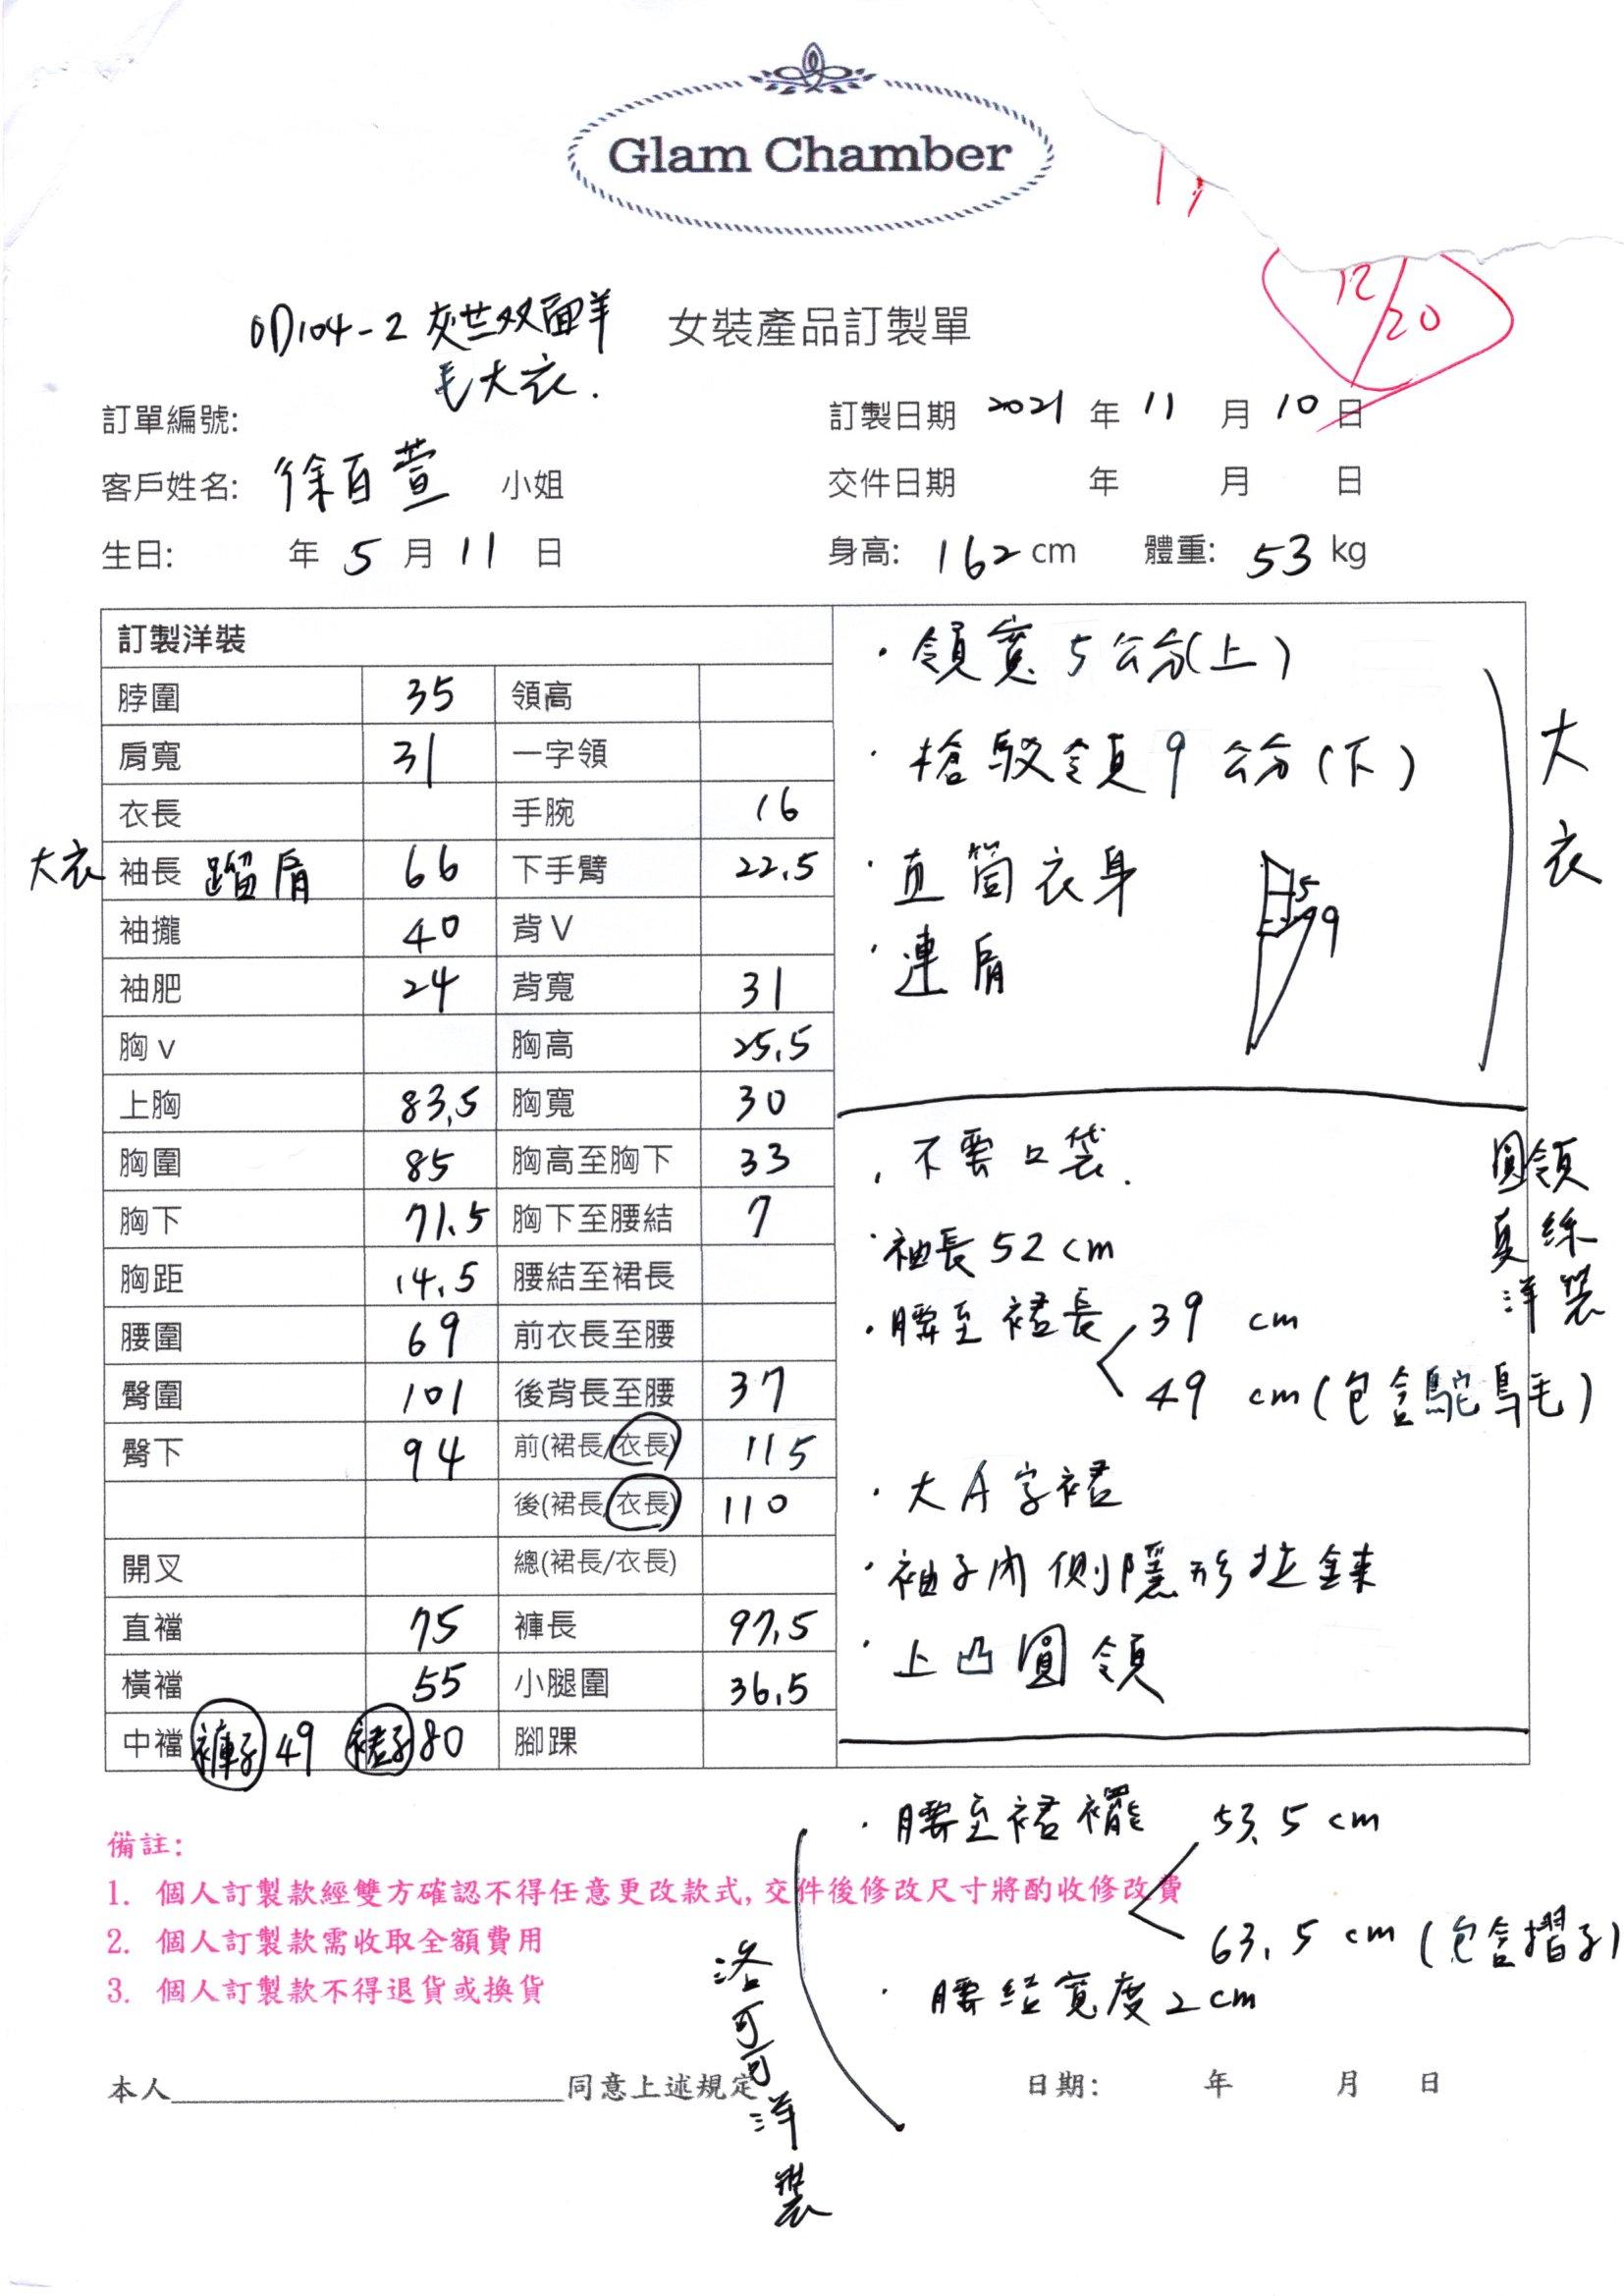 Glam Chamber
12/20
OD104-2 灰芭双面羊
毛大衣.
女裝產品訂製單
訂單編號:
訂製日期 2021 年 11 月 10 日
客戶姓名: 徐百萱 小姐
交件日期 年 月 日
生日: 年 5 月 11 日
身高: 162 cm 體重: 53 kg
訂製洋裝
脖圍 35 領高
肩寬 31 一字領
衣長 手腕 16
大衣 袖長 蹓肩 66 下手臂 22.5
袖攏 40 背V
袖肥 24 背寬 31
胸v 胸高 25.5
上胸 83.5 胸寬 30
胸圍 85 胸高至胸下 33
胸下 71.5 胸下至腰結 7
胸距 14.5 腰結至裙長
腰圍 69 前衣長至腰
臀圍 101 後背長至腰 37
臀下 94 前(裙長/衣長) 115
後(裙長/衣長) 110
開叉 總(裙長/衣長)
直襠 75 褲長 97.5
橫襠 55 小腿圍 36.5
中襠 褲子 49 裙子 80 腳踝
· 領寬 5 公分(上)
· 槍駁領 9 公分(下)
· 直筒衣身
· 連肩
5
9
大衣
· 不要口袋.
· 袖長 52 cm
· 腰至裙長 39 cm
49 cm (包含駝鳥毛)
· 大A字裙
· 袖子內側隱形拉鍊
· 上凸圓領
圓領
真絲
洋裝
· 腰至裙襬 53.5 cm
63.5 cm (包含摺子)
· 腰結寬度 2 cm
洛可可洋裝
備註:
1. 個人訂製款經雙方確認不得任意更改款式, 交件後修改尺寸將酌收修改費
2. 個人訂製款需收取全額費用
3. 個人訂製款不得退貨或換貨
本人 同意上述規定
日期: 年 月 日